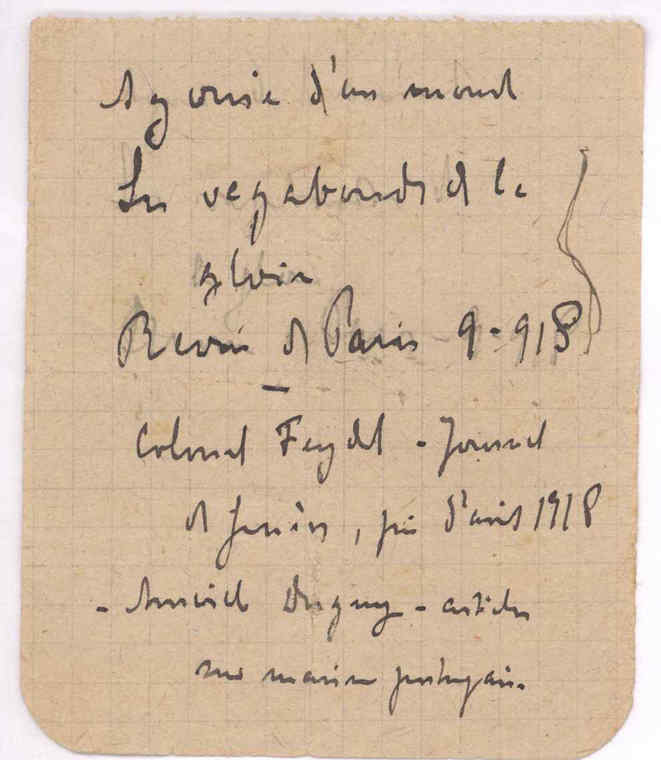 Agonie d'un monde
Les vagabonds de la
gloire
Revue de Paris 9-918
Colonel Feydel - Journal
de Genève, fin d'août 1918
- Amiral Degouy - articles
sur marine